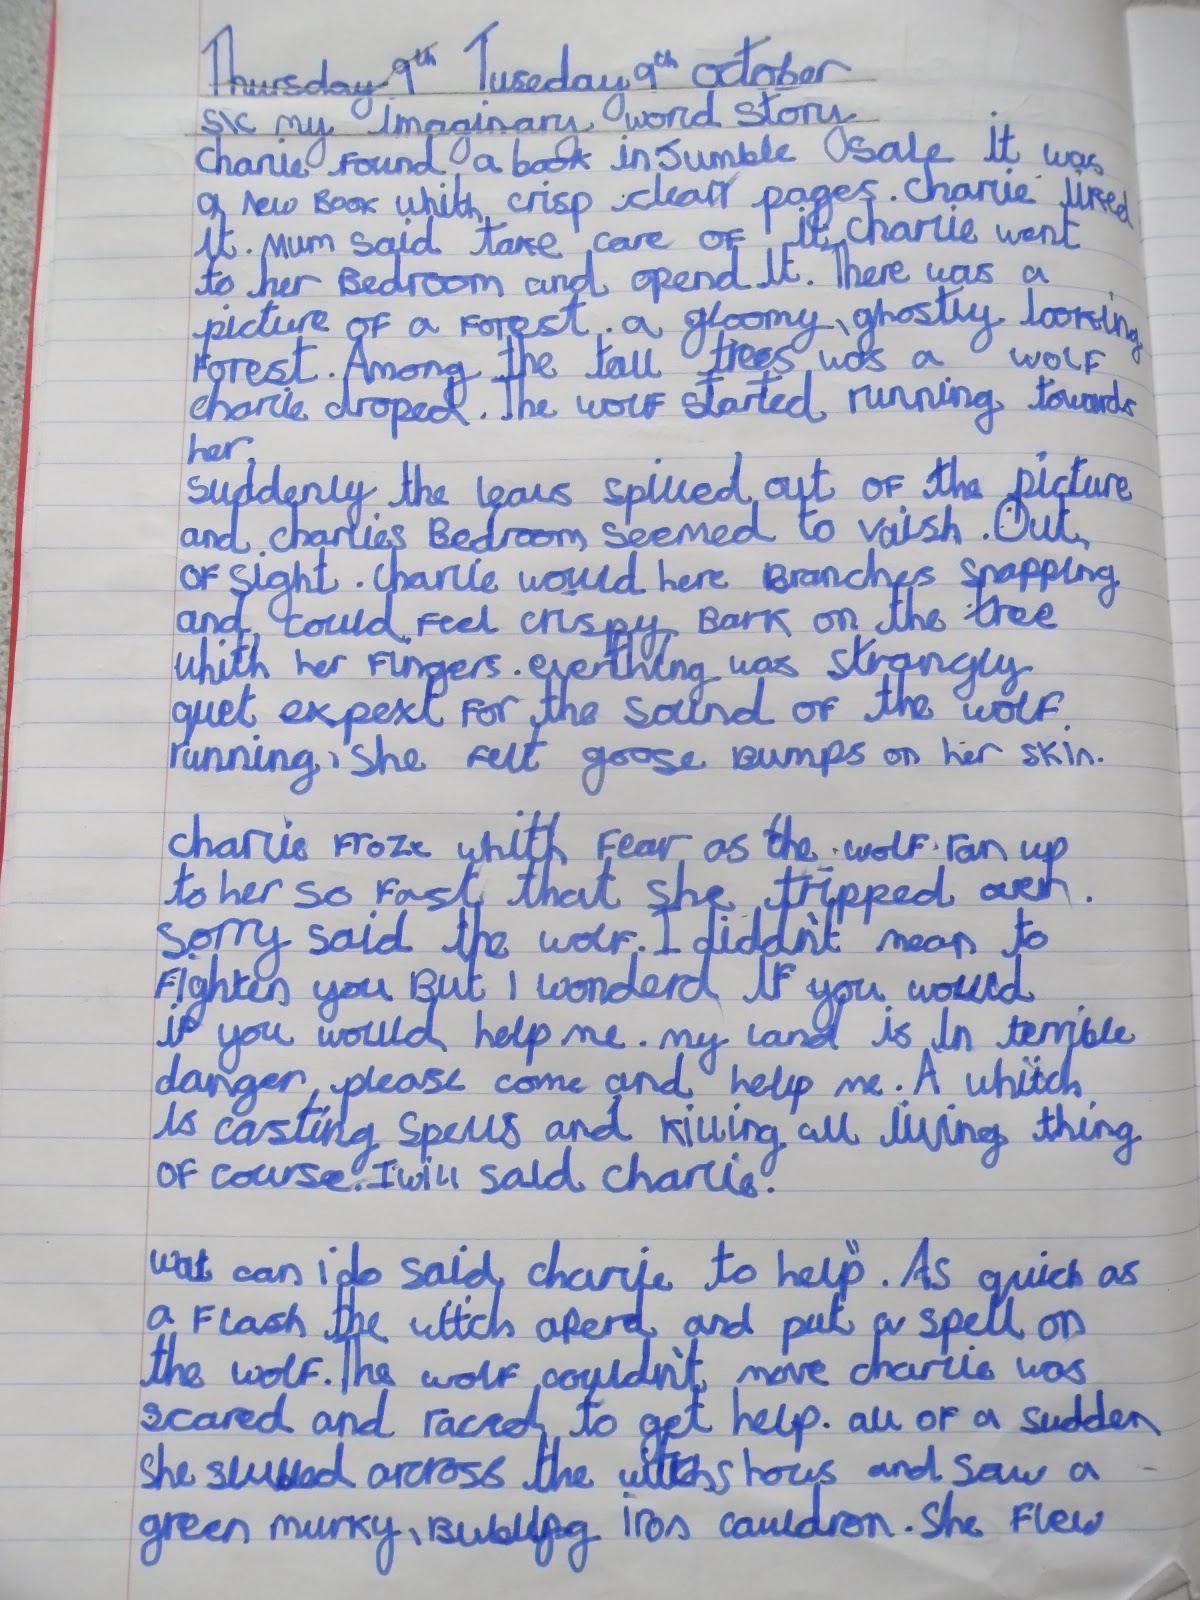 Thursday 9th Tuseday 9th october
my Imaginary word story
Charlie Found a book in Jumble sale it was
a New Book whith crisp clean pages. Charlie liked
it. Mum said take care of it, Charlie went
to her Bedroom and opend It. There was a
picture of a Forest. a gloomy, ghostly looking
Forest. Among the tall trees was a wolf
charlie droped. The wolf started running towards
her.
Suddenly the leaus spilled out of the picture
and charlies Bedroom seemed to vaish. Out
of sight. Charlie would here Branches snapping
and could Feel crispy Bark on the tree
whith her Fingers. everthing was strangly
quet expext For the sound of the wolf
running, She Felt goose Bumps on her skin.
Charlie Froze whith Fear as the wolf ran up
to her so Fast that she tripped over.
Sorry said the wolf. I diddn't mean to
Fighten you But I wonderd If you would
if you would help me. my land is In terrible
danger, please come and help me. A whitch
Is casting spells and killing all living thing
of course. I will said Charlie.
wat can i do said charlie to help". As quick as
a Flash the witch aperd and put a spell on
the wolf. The wolf couldn't move charlie was
scared and raced to get help. all of a sudden
she across the witchs hous and saw a
green murky, Bubling iron cauldron. She Flew